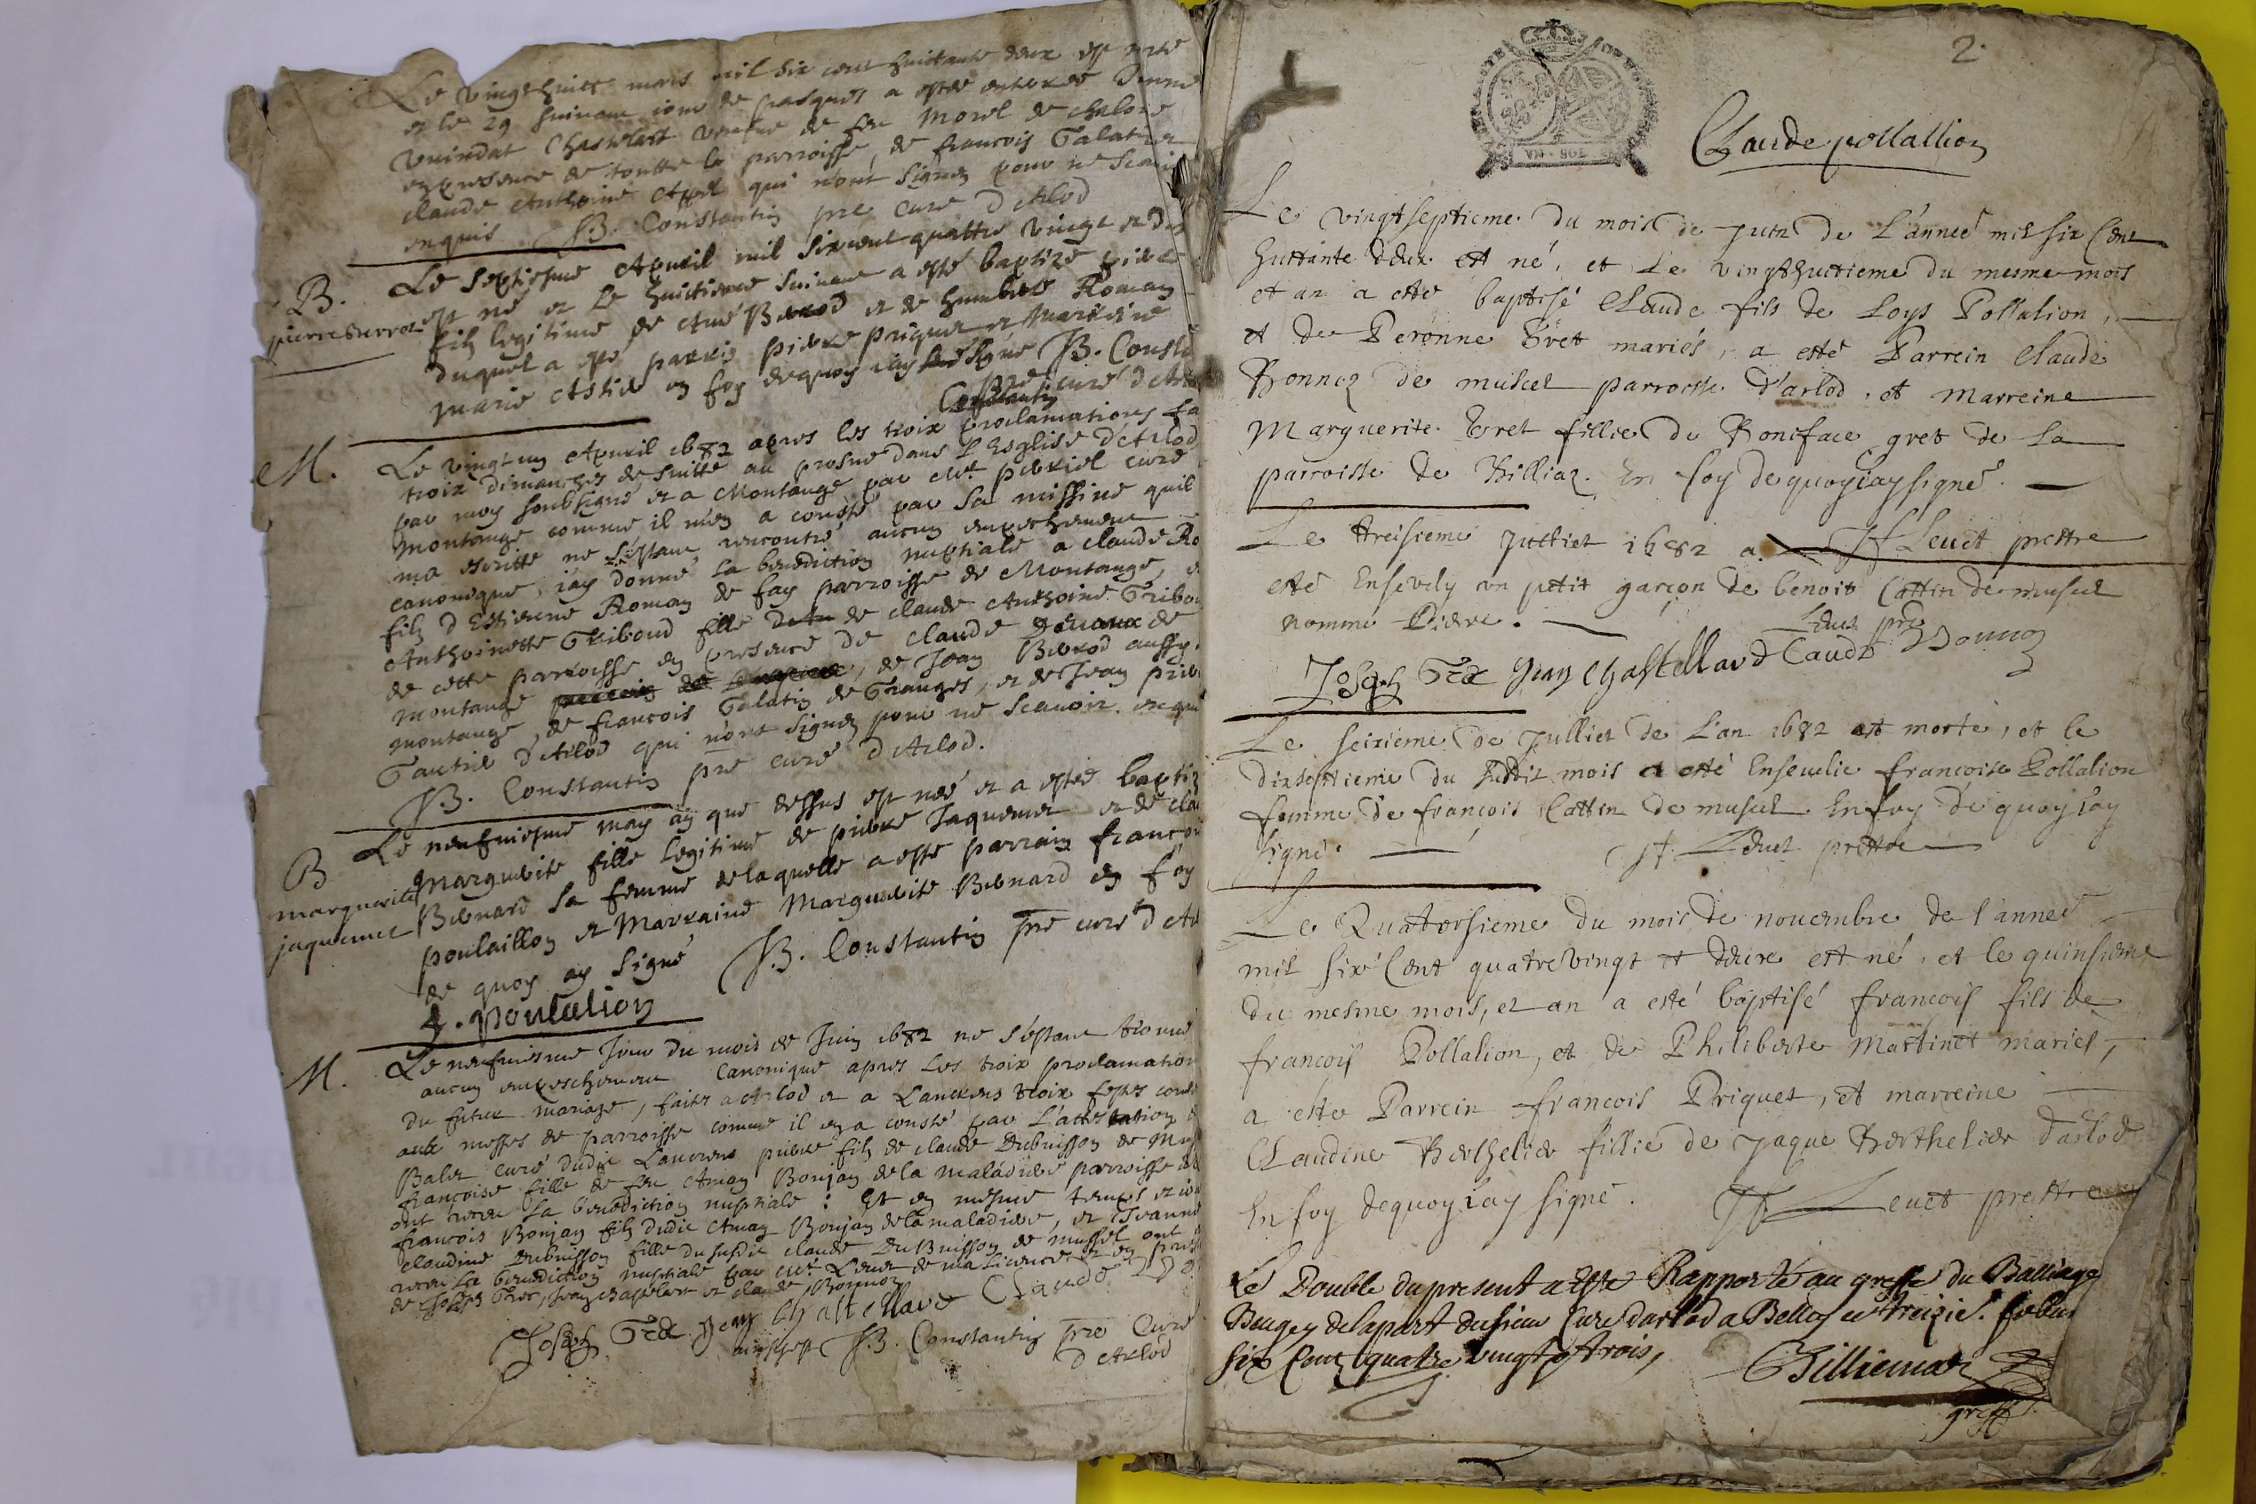 Le vingt huict mars mil six cent huittante deux est morte
et le 29 suivant jour de pasques a estée enterrée
Chastelart veufve de feu Morel de
en presence de toutte la parroisse, de francois Galatin
claude Anthoine qui n'ont signez pour ne scavoir
enquis. B. Constantin pre curé d'Arlod
B.
pierre berrod
Le septiesme Apvril mil six cent quattre vingt et deux
est né et le huictiesme suivant a esté baptizé pierre
filz legitime de Amé Berrod et de humberte Roman
duquel a esté parrin pierre priquet et marreine
marie en foy dequoy iay signé B. Constantin
pre curé d'Arlod
M.
Le vingt un Apvril 1682 apres les troix proclamations
troix dimanches de suitte au prosne dans l'Esglise d'Arlod
par moy soubsigné et a Montange par Mre curé
Montange comme il m'en a consté par sa missive quil
ma escritte ne s'estant rencontré aucun empechement
canonique, iay donné la benediction nuptiale a claude
filz d'Estienne Roman de fay parroisse de Montange, et
Anthoinette Griboud fille de claude Anthoine Gribou
de cette parroisse en presence de claude de
montange, de Jean Berrod aussy
montange, de francois Galatin de Granges, et de Jean
Gautie d'Arlod qui n'ont signez pour ne scavoir. enquis
B. Constantin pre curé d'Arlod.
B
marguerite
jaquemet
Le neufviesme may an que dessus est née et a estée baptiz
Marguerite fille legitime de pierre Jaquemet et de
Bernard sa femme de laquelle a esté parrain francois
poulaillon et Marraine Marguerite Bernard en foy
de quoy ay signé B. Constantin pre curé d'Arl
f. poulalion
M.
Le neufviesme Jour du mois de Juin 1682 ne s'estant trouvé
aucun empeschement canonique apres les troix proclamation
du futur mariage, faites a Arlod et a Lancrens troix festes
aux messes de parroisse comme il en a consté par L'attestation
Balet curé dudit Lancrens pierre filz de claude Dubuisson de
françoise fille de feu Amay Bonjan de la maladiere parroisse
ont receu la benediction nuptiale : Et en mesme temps et
francois Bonjan filz dudit Amay Bonjan de la maladiere, et Jeanne
claudine Dubuisson fille du susdit claude Dubuisson de mussel ont
receu la benediction nuptiale par Mre Levet de ma licence et en
de Joseph Gex, Jean chastelart et claude Bonnoz
Joseph Gex Jean Chastellard Claude
B. Constantin pre Curé
d'Arlod
2.
VN · SOL
Claude pollallion
Le vingtseptieme du mois de Juin de L'année mil six Cent
huttante deux est né, et Le vingthuttieme du mesme mois
et an a esté baptisé Claude fils de Loys Pollalion,
et de Peronne Gret mariés, a esté Parrein Claude
Bonnoz de muscel parroisse d'arlod, et Marreine
Marguerite Gret fillie de Boniface gret de La
parroisse de Billiaz. En foy dequoy iay signé.
Levet prettre
Le treisieme Julliet 1682 a
esté Ensevely un petit garçon de benoit Cattin de muscel
nommé Pierre.
Levet pre
Joseph Gex Jean Chastellard Claude Bonnoz
Le seizieme de Julliet de L'an 1682 est morte, et le
dixseptieme du susdit mois a esté Ensevelie francoise Pollalion
femme de francois Cattin de muscel. En foy de quoy iay
signé. Levet prettre
Le Quatorsieme du mois de novembre de l'année
mil six Cent quatrevingt et deux est né, et le quinsieme
du mesme mois, et an a esté baptisé francois fils de
francois Pollalion, et de Philiberte Martinet mariés,
a esté Parrein francois Priquet, et marreine
Claudine Berthelier fillie de Jaque Berthelier d'arlod
En foy dequoy iay signé. Levet prettre
Le Double du present a este Rapporté au greffe du Balliage
Beugey de la part du sieur Curé d'arlod a Belley ce treizie.
six Cent quatre vingt et trois,
greff.